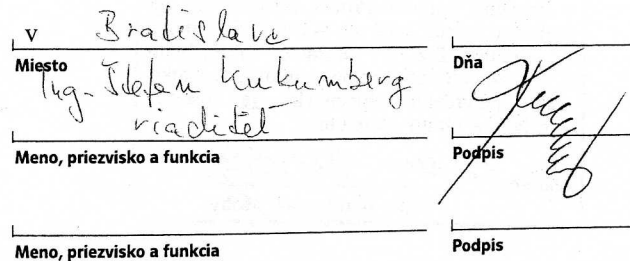 v Bratislave
Miesto
Dňa
Ing. Štefan Kukumberg
riaditeľ
Meno, priezvisko a funkcia
Podpis
Meno, priezvisko a funkcia
Podpis